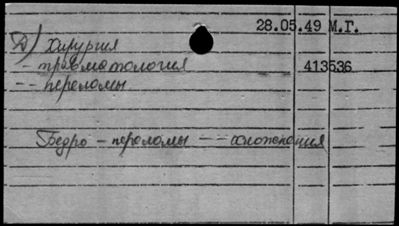 28.05.49 М.Г.
Д) Хирургия
- травматология 413536
-- переломы
Бедро - переломы -- осложнения